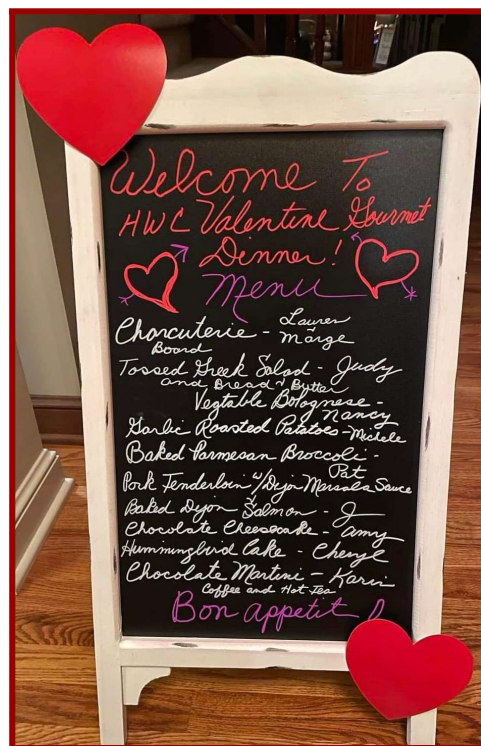 Welcome To
HWC Valentine Gourmet
Dinner!
Menu
Charcuterie - Lauren
Board Marge
Tossed Greek Salad - Judy
and Bread & Butter
Vegtable Bolognese -
Nancy
Garlic Roasted Patatoes - Michele
Baked Parmesan Broccoli -
Pat
Pork Tenderloin w/Dijon Marsala Sauce
Baked Dijon Salmon - J
Chocolate Cheesecake - Amy
Hummingbird Cake - Cheryl
Chocolate Martini - Karin
Coffee and Hot Tea
Bon Appetit !